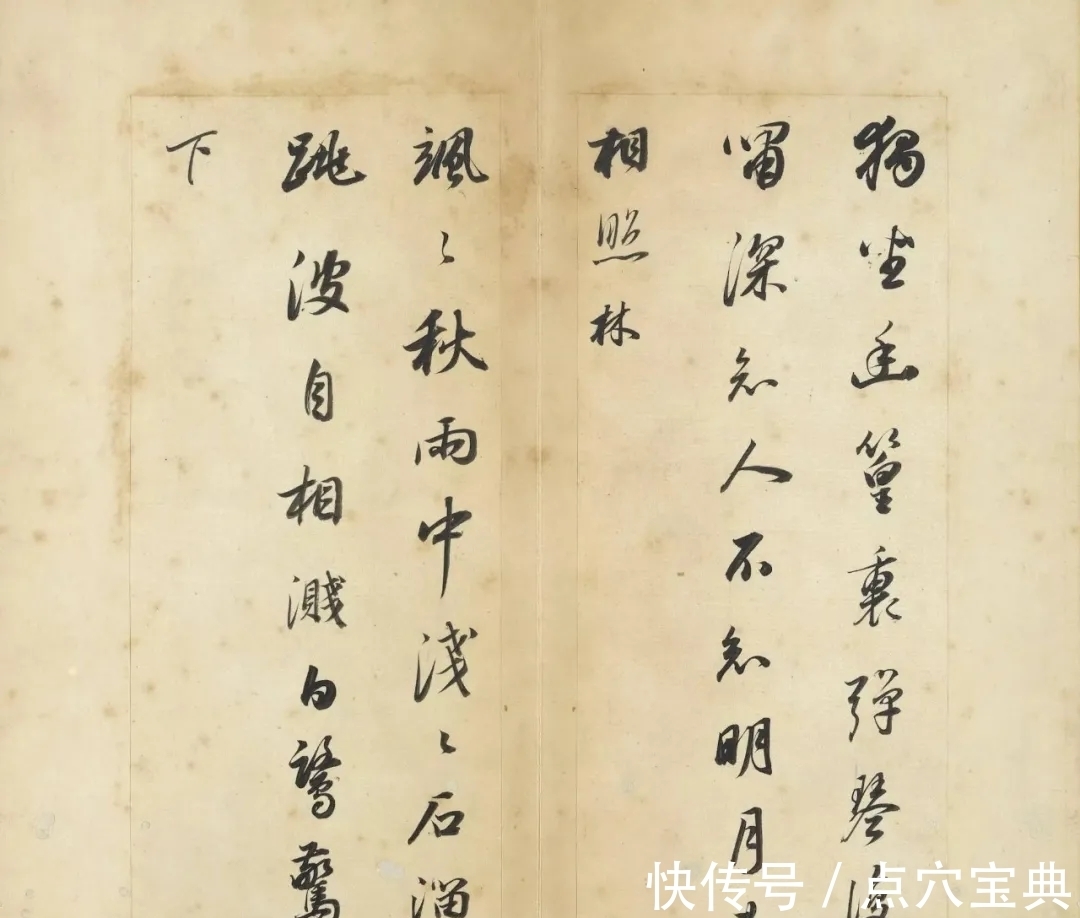 獨坐幽篁裏彈琴復
嘯深知人不知明月
相照林
颯〻秋雨中淺〻石溜
跳波自相濺白鷺驚
下
快传号 / 点穴宝典